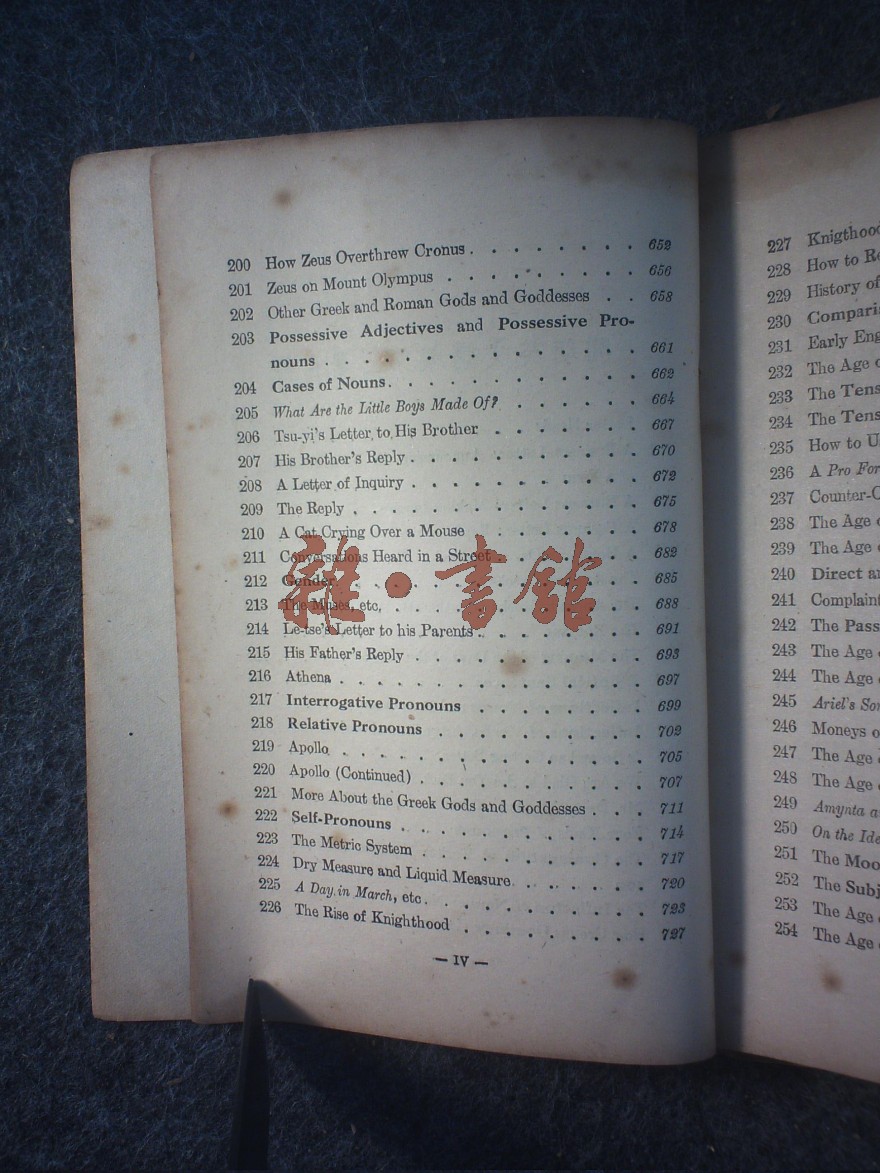 200 How Zeus Overthrew Cronus . . . . . . . . 652
201 Zeus on Mount Olympus . . . . . . . . . 656
202 Other Greek and Roman Gods and Goddesses . . 658
203 Possessive Adjectives and Possessive Pro-
nouns . . . . . . . . . . . . . . 661
204 Cases of Nouns . . . . . . . . . . . 662
205 What Are the Little Boys Made Of? . . . . . . 664
206 Tsu-yi's Letter to His Brother . . . . . . . 667
207 His Brother's Reply . . . . . . . . . . 670
208 A Letter of Inquiry . . . . . . . . . . 672
209 The Reply . . . . . . . . . . . . . 675
210 A Cat Crying Over a Mouse . . . . . . . 678
211 Conversations Heard in a Street . . . . . . . 682
212 Gender . . . . . . . . . . . . . 685
213 The Muses, etc. . . . . . . . . . . . 688
214 Le-tse's Letter to his Parents . . . . . . . . 691
215 His Father's Reply . . . . . . . . . . 693
216 Athena . . . . . . . . . . . . . 697
217 Interrogative Pronouns . . . . . . . . 699
218 Relative Pronouns . . . . . . . . . . 702
219 Apollo . . . . . . . . . . . . . 705
220 Apollo (Continued) . . . . . . . . . . 707
221 More About the Greek Gods and Goddesses . . . 711
222 Self-Pronouns . . . . . . . . . . . 714
223 The Metric System . . . . . . . . . . 717
224 Dry Measure and Liquid Measure . . . . . . 720
225 A Day in March, etc. . . . . . . . . . . 723
226 The Rise of Knighthood . . . . . . . . . 727
— IV —
227 Knigthood
228 How to
229 History of
230
231 Early
232 The Age
233 The
234 The
235 How to
236 A Pro
237
238 The Age
239 The Age
240 Direct
241
242 The
243 The Age
244 The Age
245 Ariel's
246 Moneys
247 The Age
248 The Age
249 Amynta
250 On the
251 The
252 The
253 The Age
254 The Age
雜·書館